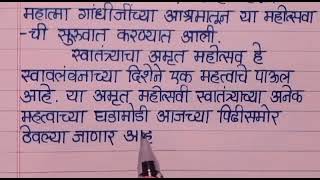 महात्मा गांधीजींच्या आश्रमातून या महोत्सवा
-ची सुरुवात करण्यात आली.
स्वातंत्र्याचा अमृत महोत्सव हे
स्वावलंबनाच्या दिशेने एक महत्वाचे पाऊल
आहे. या अमृत महोत्सवी स्वातंत्र्याच्या अनेक
महत्वाच्या घडामोडी आजच्या पिढीसमोर
ठेवल्या जाणार आह